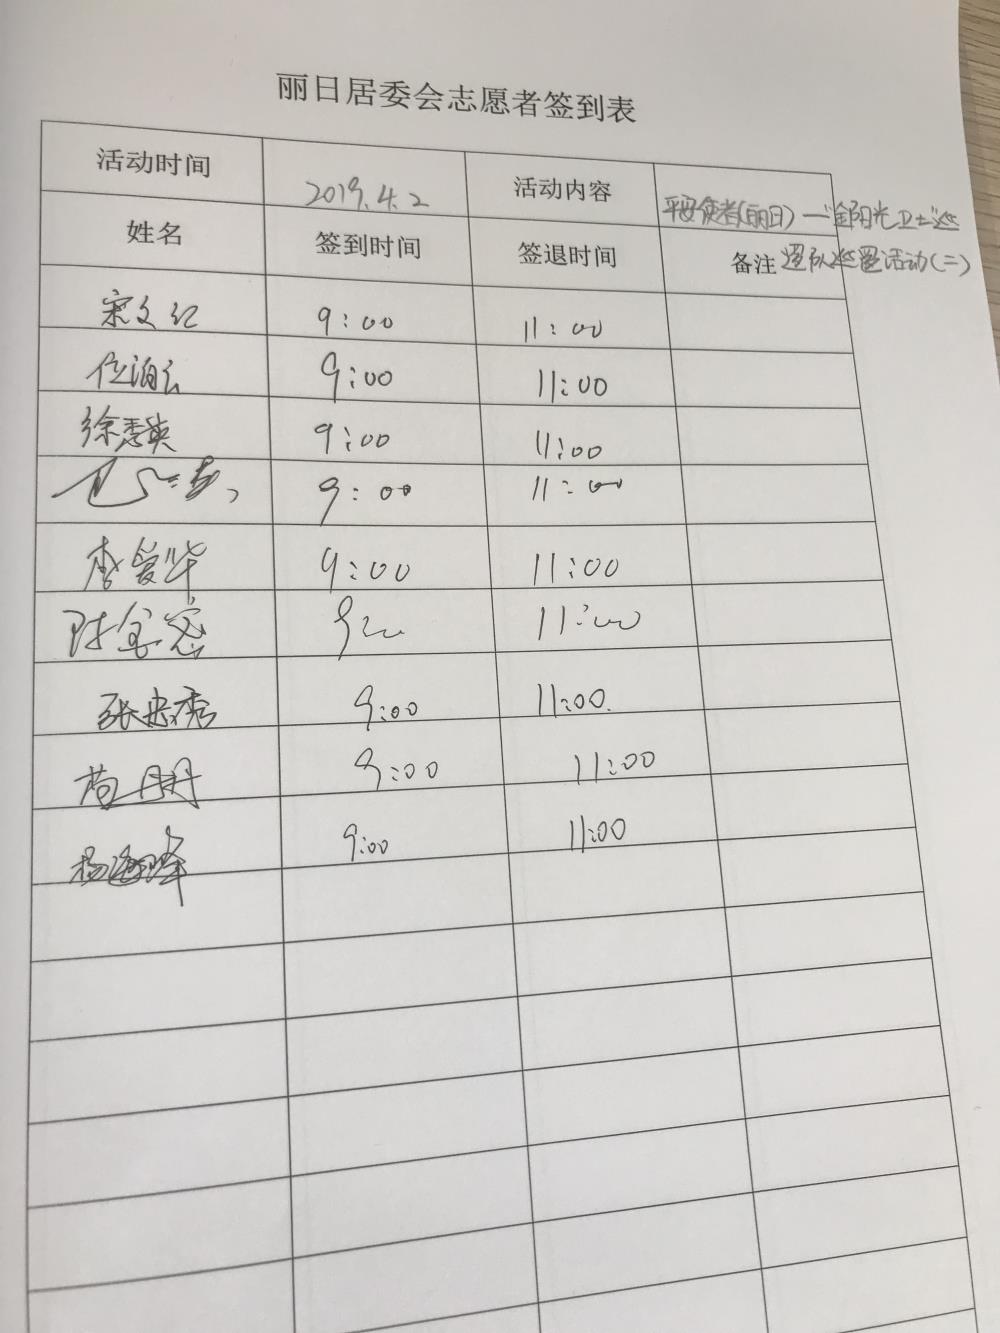 丽日居委会志愿者签到表
活动时间 2019.4.2 活动内容 平安使者(丽日)一"金阳光卫士"巡
逻队巡逻活动(二)
姓名 签到时间 签退时间 备注
宋文红 9:00 11:00
位海云 9:00 11:00
徐秀英 9:00 11:00
9:00 11:00
李爱华 9:00 11:00
陈宝宏 9:00 11:00
张忠秀 9:00 11:00
苟丹丹 9:00 11:00
杨海峰 9:00 11:00